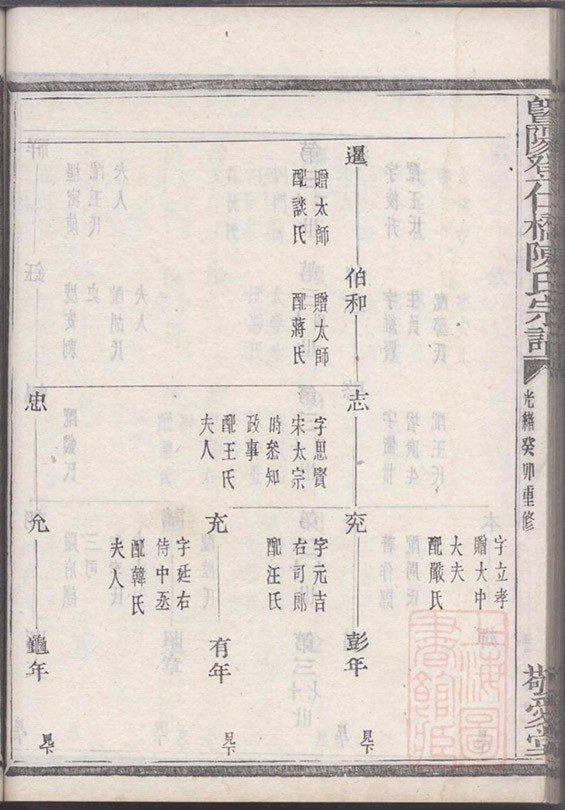 暨陽登仕橋陳氏宗譜
光緒癸卯重修
敬愛堂
暹
贈太師
配談氏
伯和
贈太師
配蔣氏
志
字思賢
宋太宗
時參知
政事
配王氏
夫人
兖
字立孝
贈大中
大夫
配嚴氏
彭年
見下
充
字元吉
右司郎
配汪氏
有年
見下
忠
允
字延右
侍中丞
配韓氏
夫人
龜年
見下
上海圖
書館藏